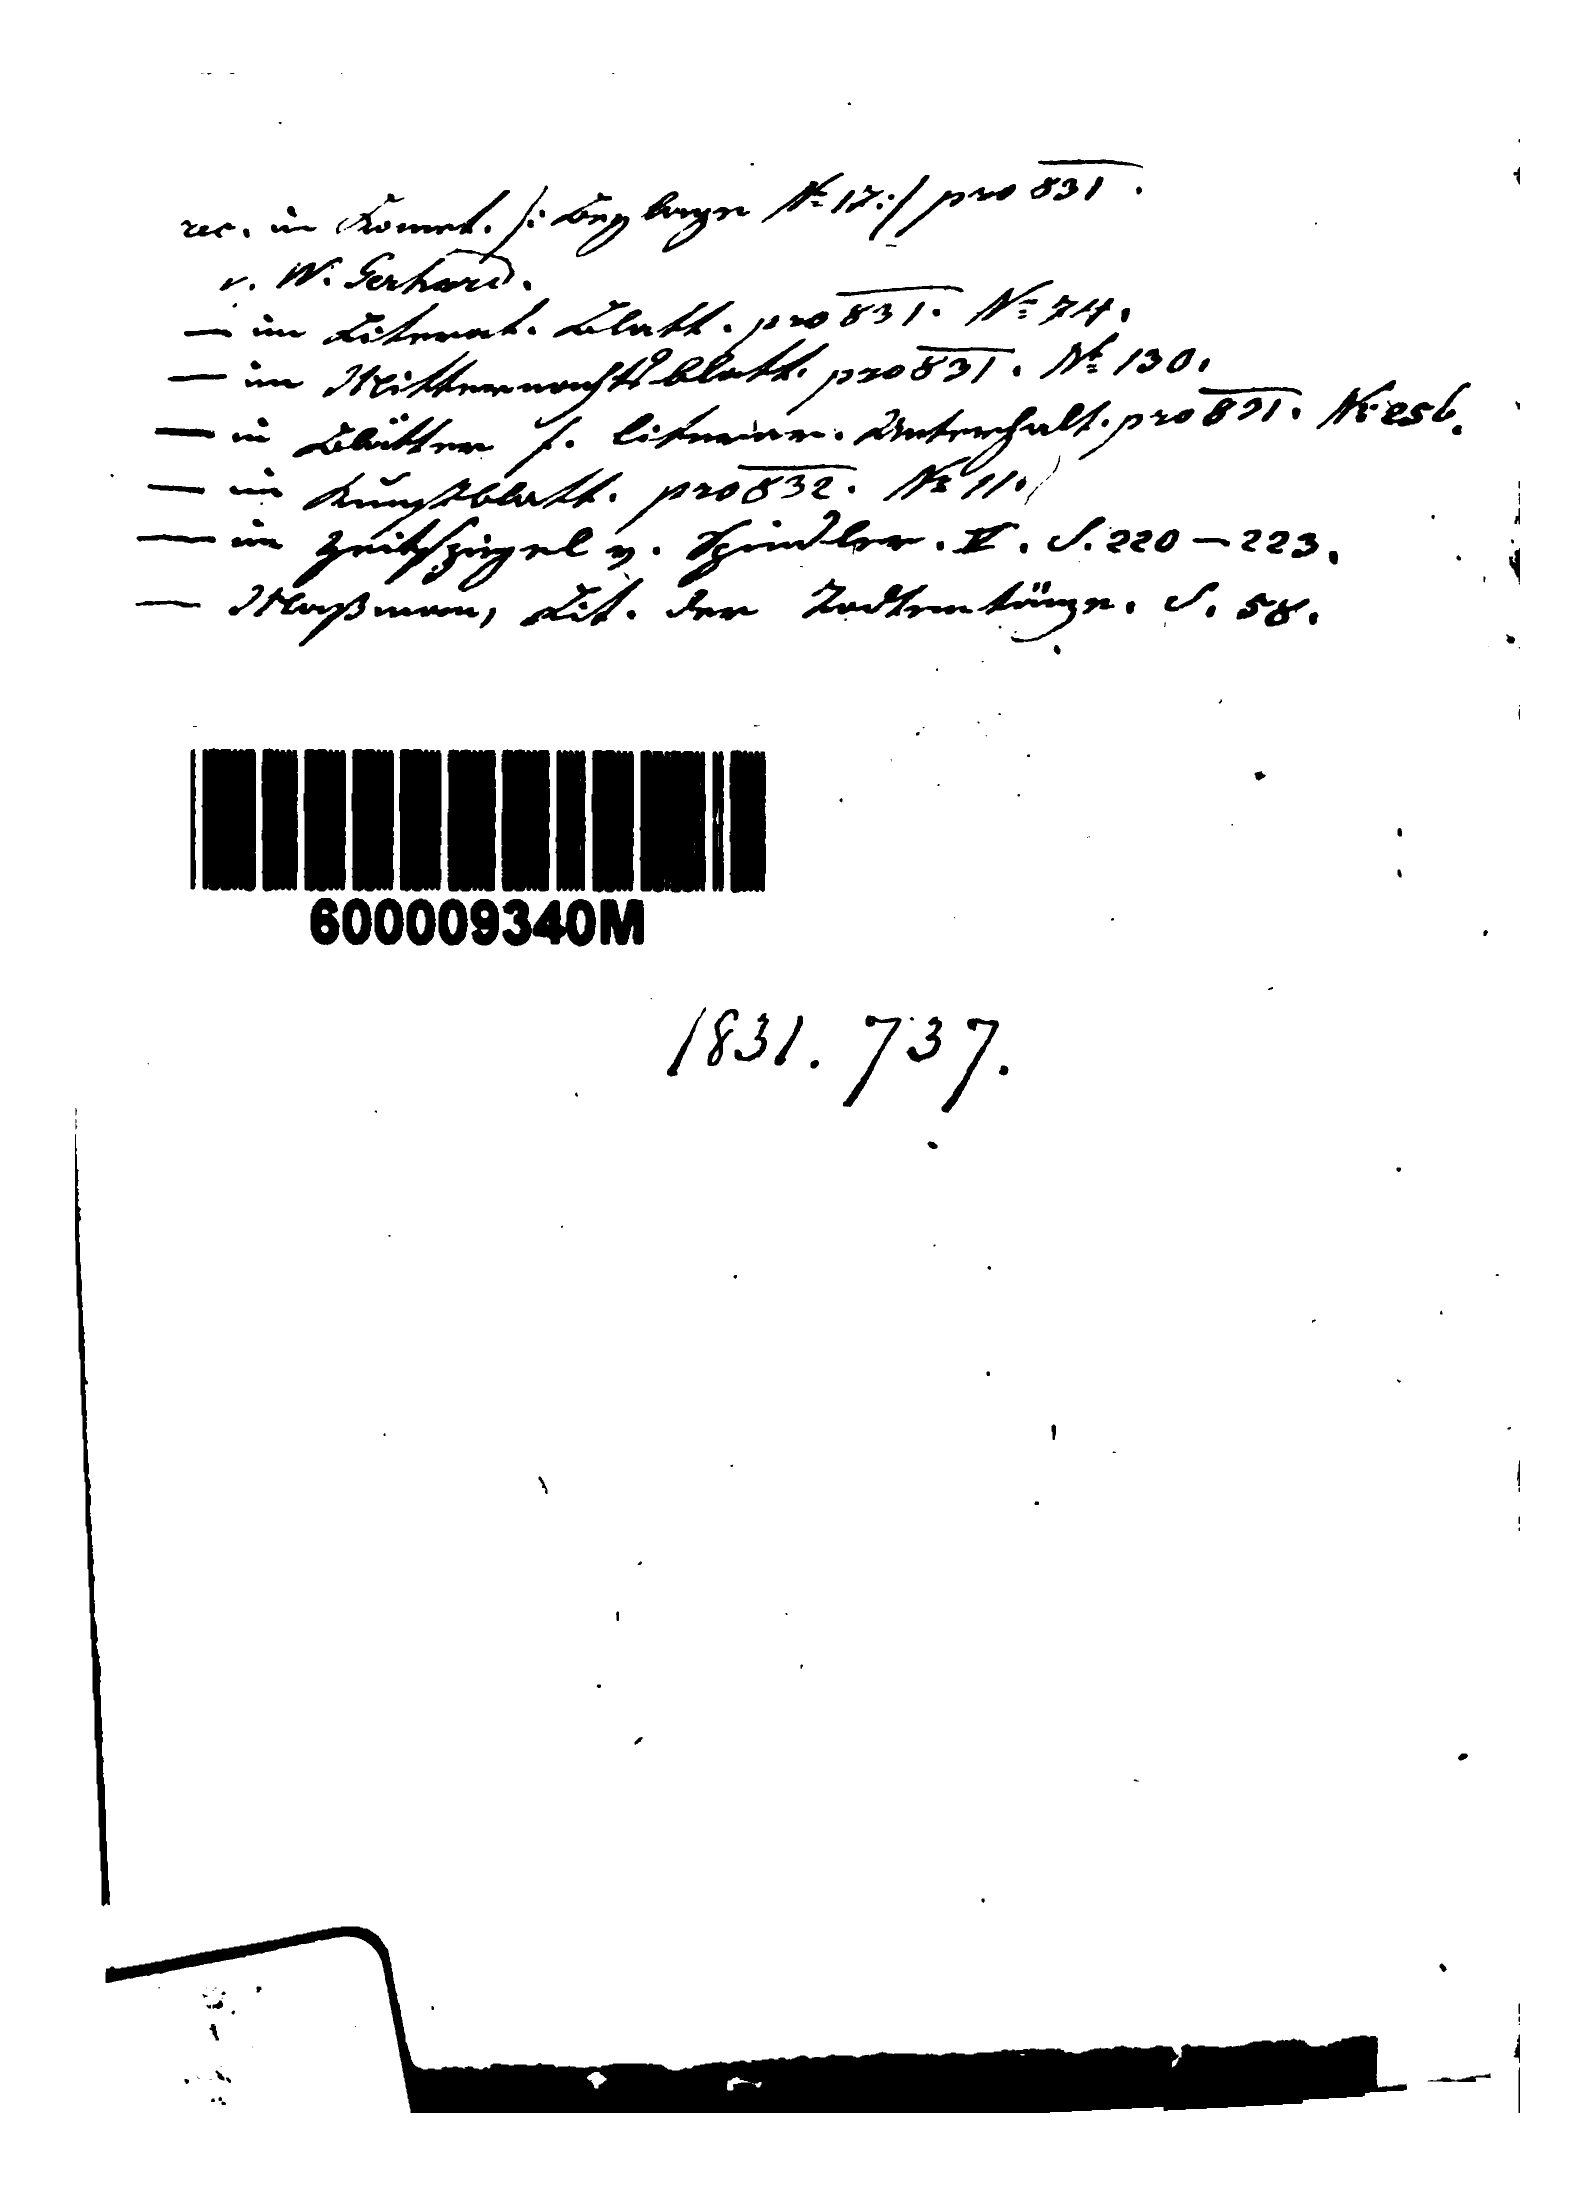 rec. in Komet. /: Beylage № 17:/ pro 831.
v. W. Gerhard.
— im Literat. Blatt. pro 831. № 74.
— im Mitternachtsblatt. pro 831. № 130.
— in Blätter f. literar. Unterhalt. pro 831. № 256.
— im Kunstblatt. pro 832. № 11.
— im Zeitspiegel v. Spindler. II. S. 220 — 223.
— Maßmann, Lit. der Todtentänze. S. 58.
600009340M
1831. 737.